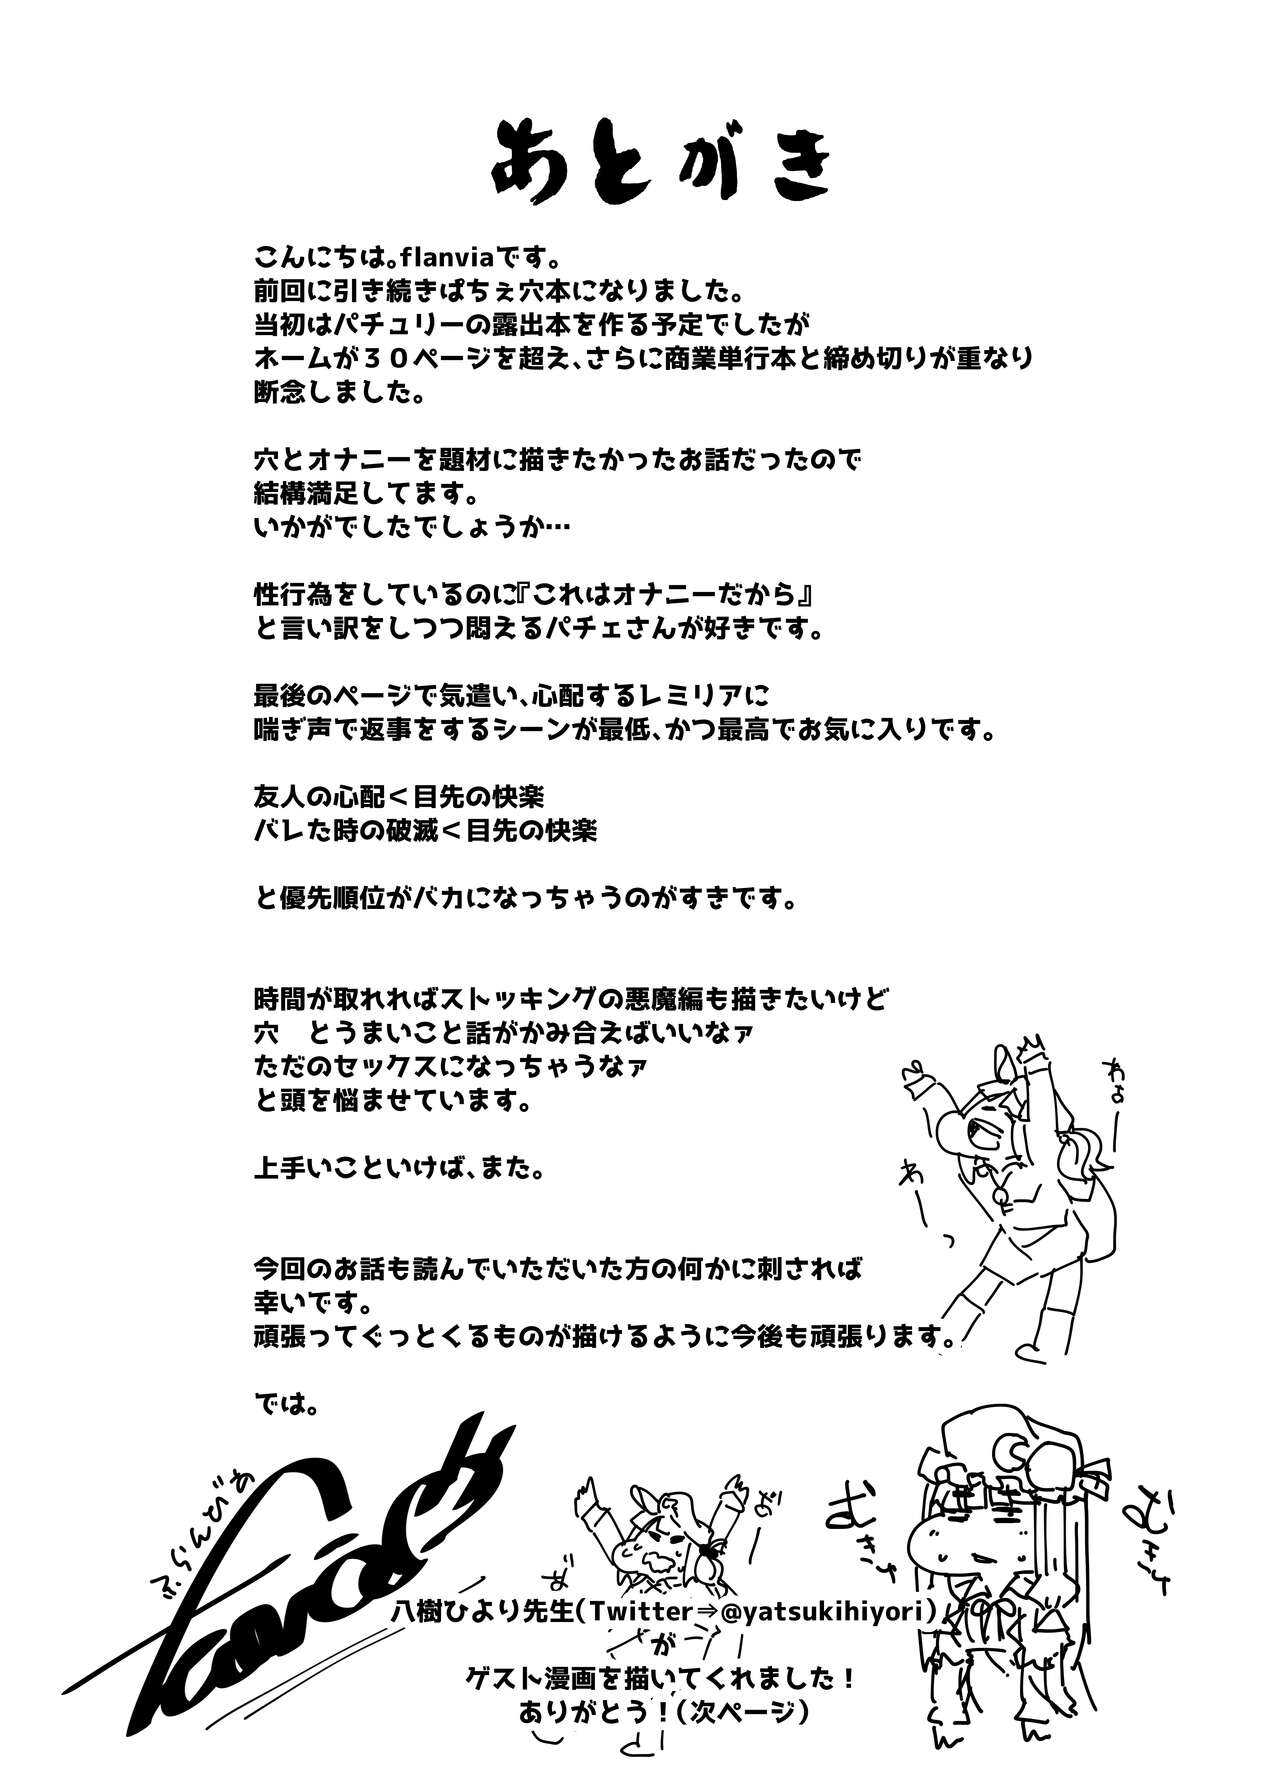 あとがき
こんにちは。flanviaです。
前回に引き続きぱちぇ穴本になりました。
当初はパチュリーの露出本を作る予定でしたが
ネームが３０ページを超え、さらに商業単行本と締め切りが重なり
断念しました。
穴とオナニーを題材に描きたかったお話だったので
結構満足してます。
いかがでしたでしょうか…
性行為をしているのに『これはオナニーだから』
と言い訳をしつつ悶えるパチェさんが好きです。
最後のページで気遣い、心配するレミリアに
喘ぎ声で返事をするシーンが最低、かつ最高でお気に入りです。
友人の心配＜目先の快楽
バレた時の破滅＜目先の快楽
と優先順位がバカになっちゃうのがすきです。
時間が取れればストッキングの悪魔編も描きたいけど
穴　とうまいこと話がかみ合えばいいなァ
ただのセックスになっちゃうなァ
と頭を悩ませています。
上手いこといけば、また。
わぁー
わーっ
今回のお話も読んでいただいた方の何かに刺されば
幸いです。
頑張ってぐっとくるものが描けるように今後も頑張ります。
では。
ふらんびあ
むきゅ
むきゅ
八樹ひより先生（Twitter⇒@yatsukihiyori）
が
ゲスト漫画を描いてくれました！
ありがとう！（次ページ）